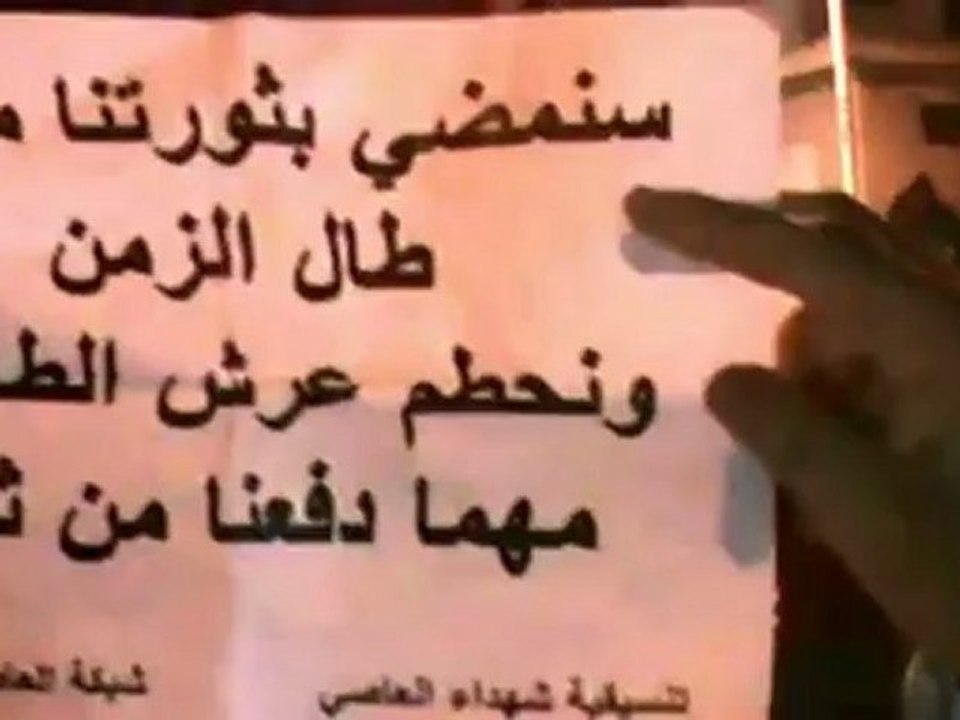 سنمضي بثورتنا م
طال الزمن
ونحطم عرش الط
مهما دفعنا من ث
تنسيقية شهداء العاصي شبكة العا